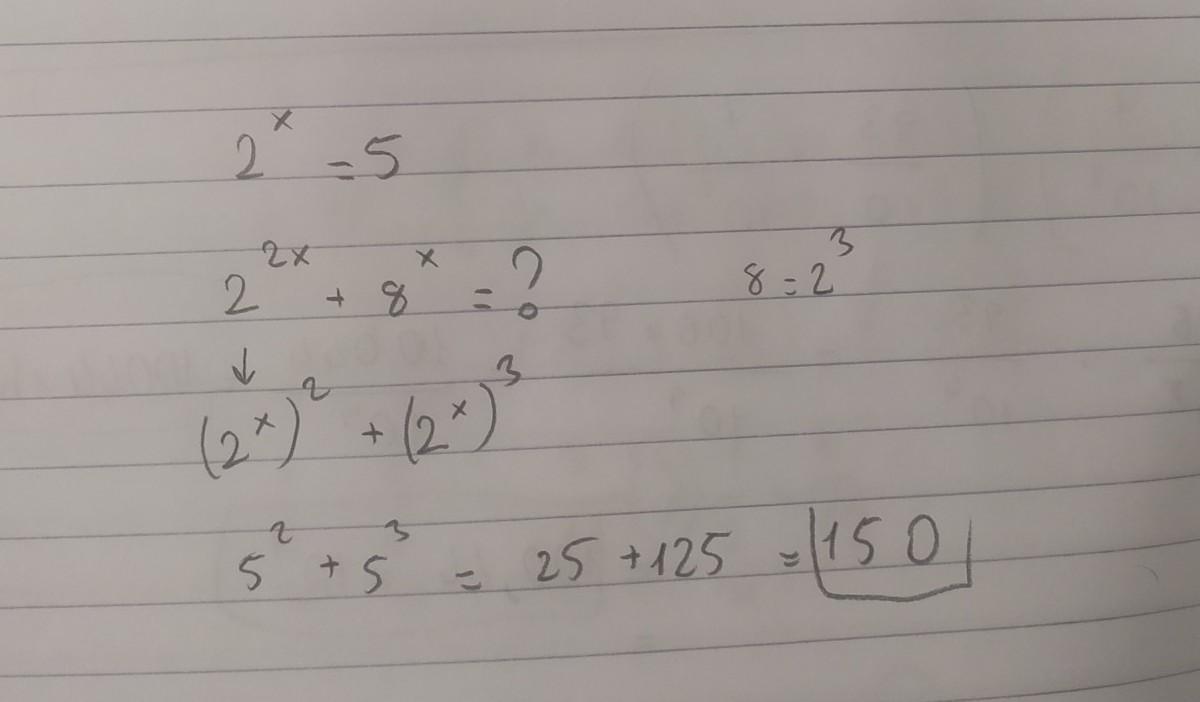 2^x = 5
2^2x + 8^x = ? 8 = 2^3
↓
(2^x)^2 + (2^x)^3
5^2 + 5^3 = 25 + 125 = 150